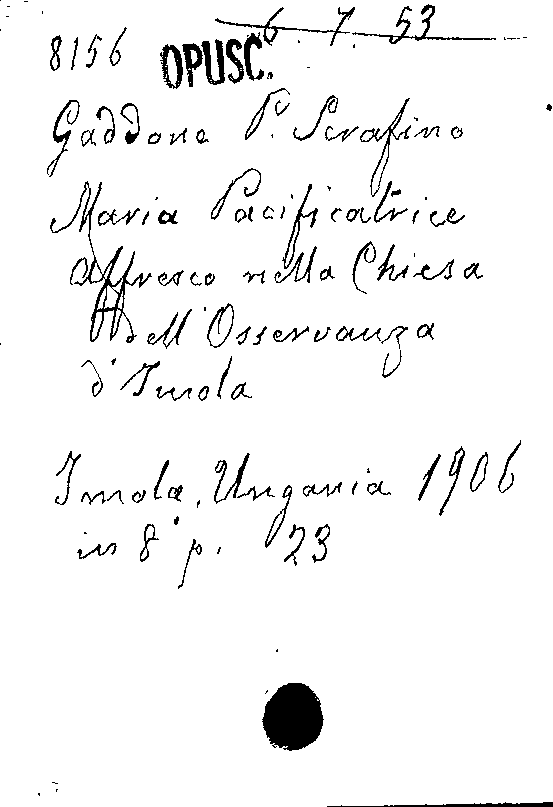 6. 7. 53
8156 OPUSC.
Gaddone P. Serafino
Maria Pacificatrice
affresco nella Chiesa
dell'Osservanza
d'Imola
Imola, Ungania 1906
in 8° p. 23